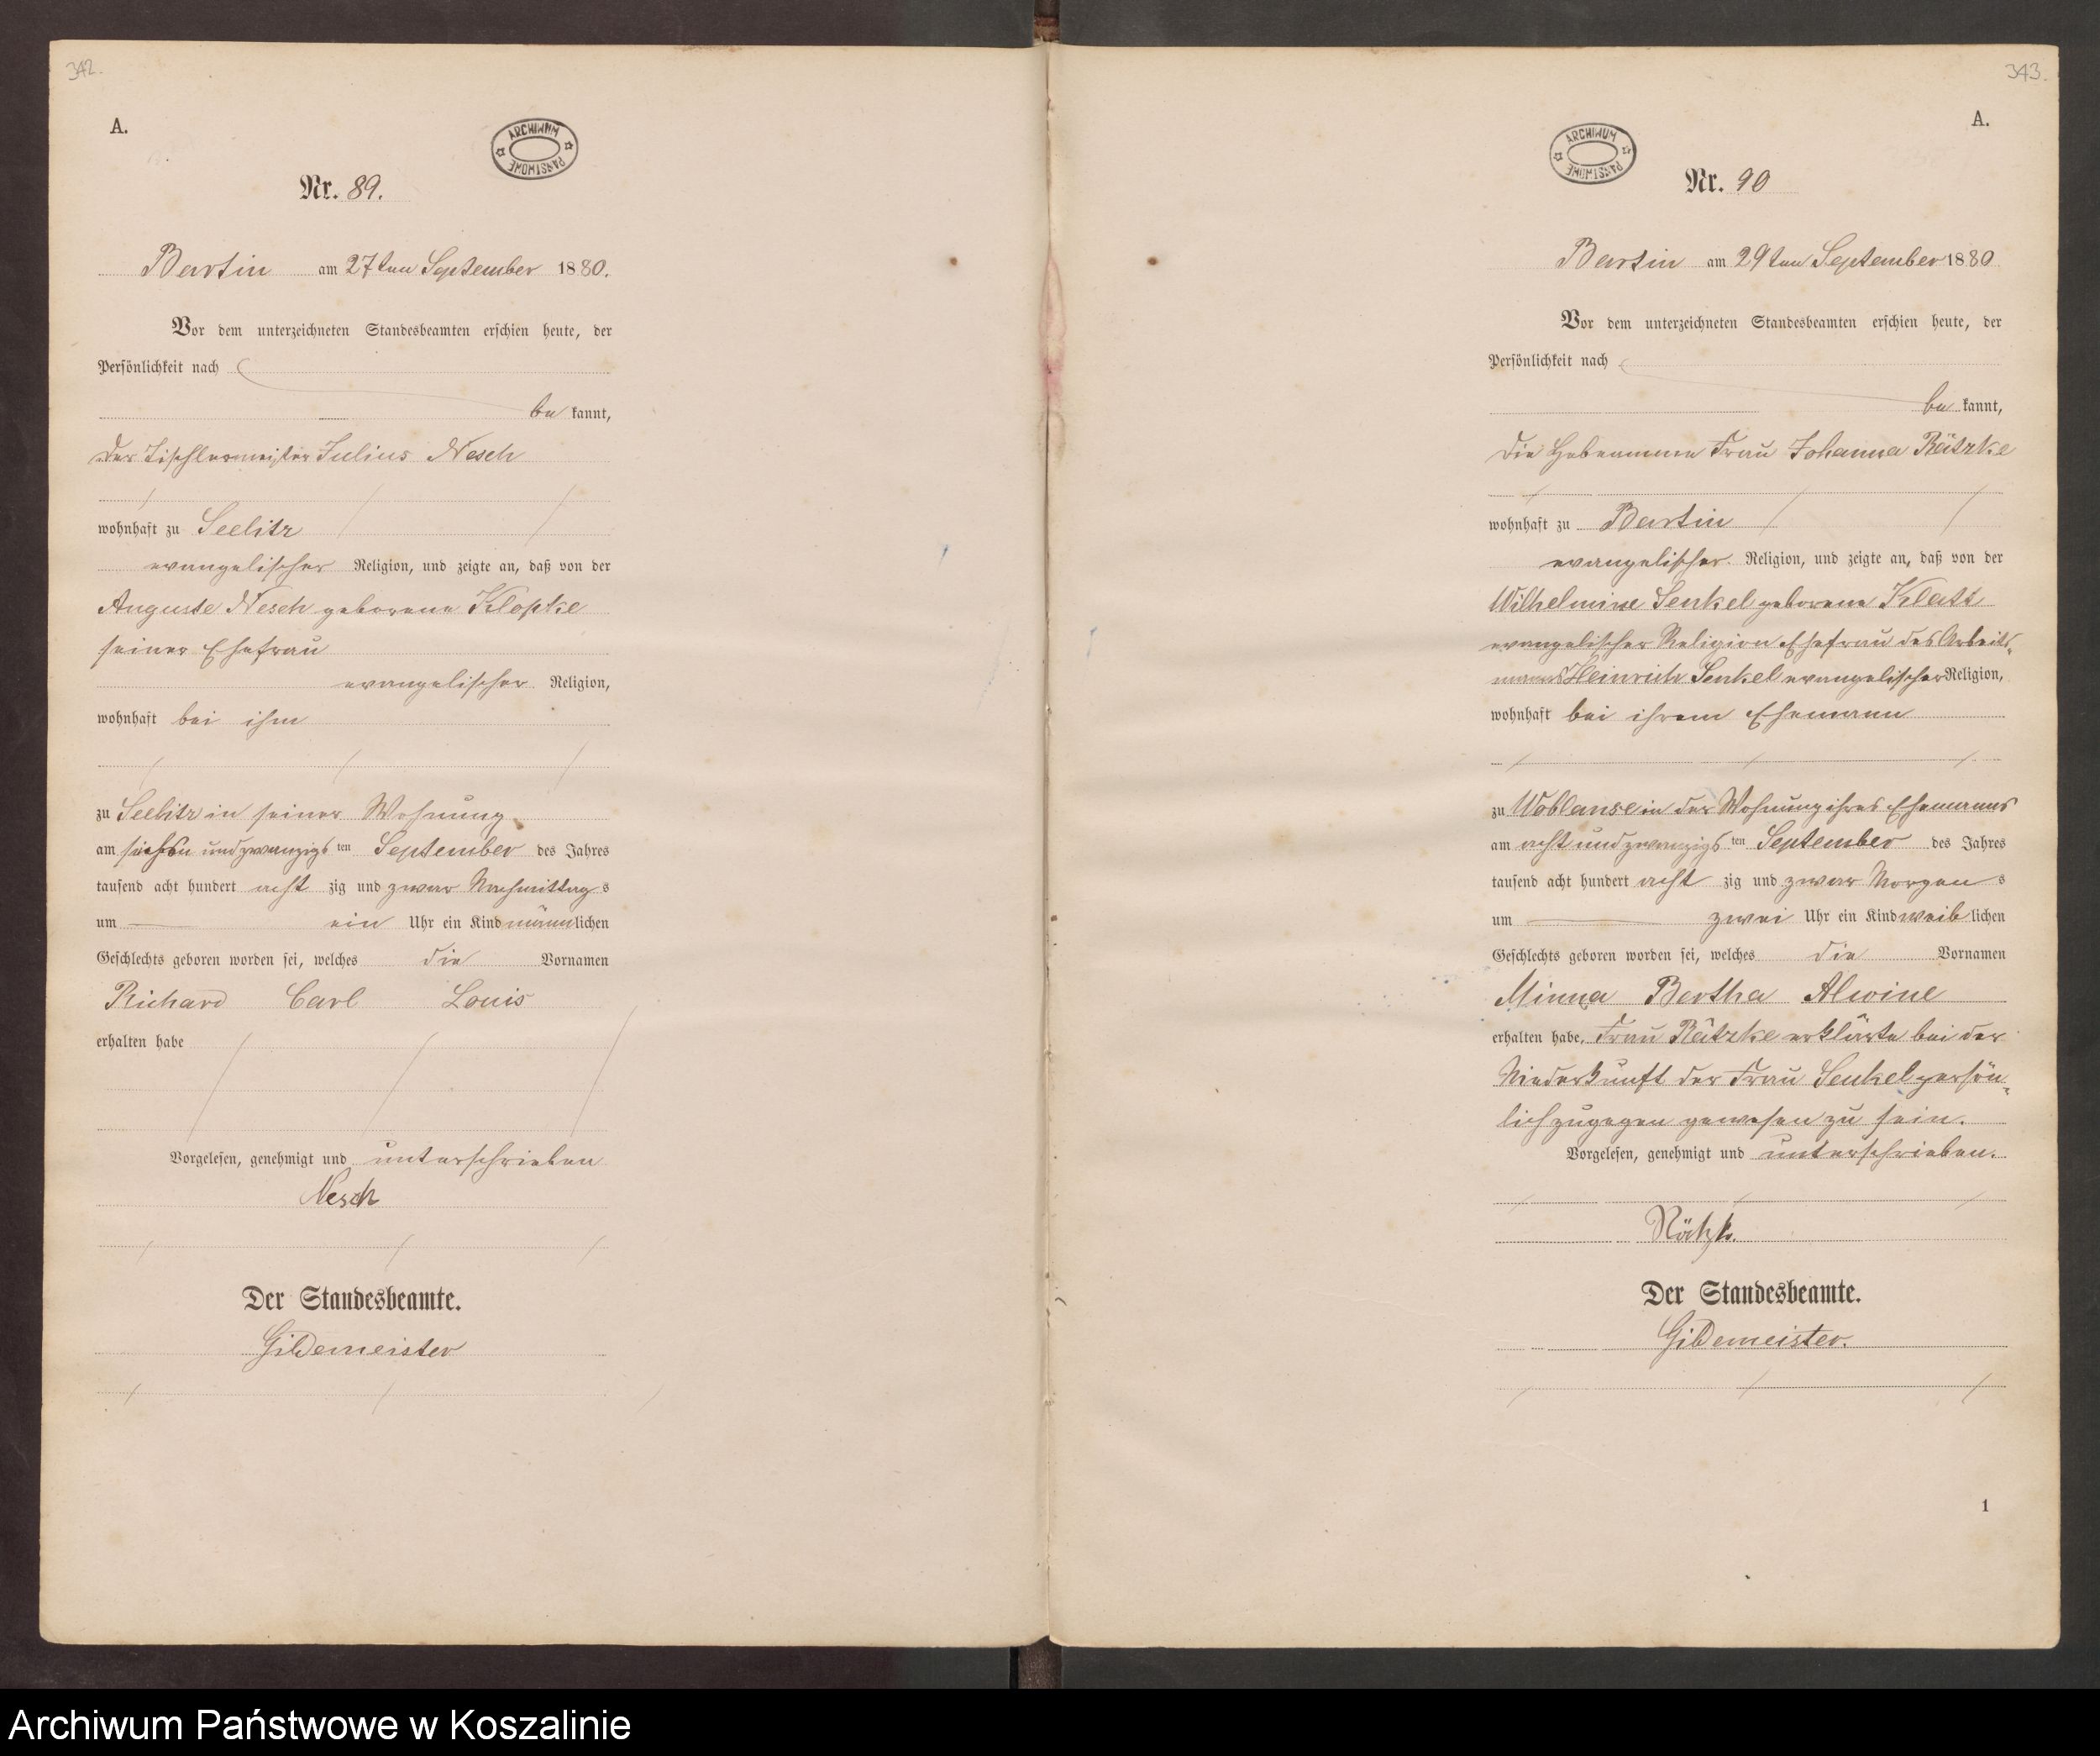 342.
A.
ARCHIWUM PAŃSTWOWE
Nr. 89.
Bartin am 27ten September 1880.
Vor dem unterzeichneten Standesbeamten erschien heute, der
Persönlichkeit nach
be kannt,
der Tischlermeister Julius Nesch
wohnhaft zu Seelitz
evangelischer Religion, und zeigte an, daß von der
Auguste Nesch geborene Klopke
seiner Ehefrau
evangelischer Religion,
wohnhaft bei ihm
zu Seelitz in seiner Wohnung
am sieben und zwanzigs ten September des Jahres
tausend acht hundert acht zig und zwar Nachmittag s
um ein Uhr ein Kind männlichen
Geschlechts geboren worden sei, welches die Vornamen
Richard Carl Louis
erhalten habe
Vorgelesen, genehmigt und unterschrieben
Nesch
Der Standesbeamte.
Gildemeister
343.
A.
ARCHIWUM PAŃSTWOWE
Nr. 90
Bartin am 29ten September 1880
Vor dem unterzeichneten Standesbeamten erschien heute, der
Persönlichkeit nach
be kannt,
die Hebeamme Frau Johanna Rätzke
wohnhaft zu Bartin
evangelischer Religion, und zeigte an, daß von der
Wilhelmine Senkel geborene Klatt
evangelischer Religion Ehefrau des Arbeits-
manns Heinrich Senkel evangelischer Religion,
wohnhaft bei ihrem Ehemann
zu Woblanse in der Wohnung ihres Ehemanns
am acht und zwanzigs ten September des Jahres
tausend acht hundert acht zig und zwar Morgen s
um zwei Uhr ein Kind weib lichen
Geschlechts geboren worden sei, welches die Vornamen
Minna Bertha Alwine
erhalten habe. Frau Rätzke erklärte bei der
Niederkunft der Frau Senkel persön-
lich zugegen gewesen zu sein.
Vorgelesen, genehmigt und unterschrieben.
Rätzke
Der Standesbeamte.
Gildemeister.
1
Archiwum Państwowe w Koszalinie